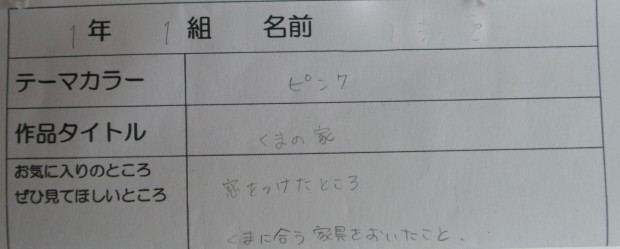 1年 1組 名前
テーマカラー ピンク
作品タイトル くまの家
お気に入りのところ
ぜひ見てほしいところ
窓をつけたところ
くまに合う家具をおいたこと.